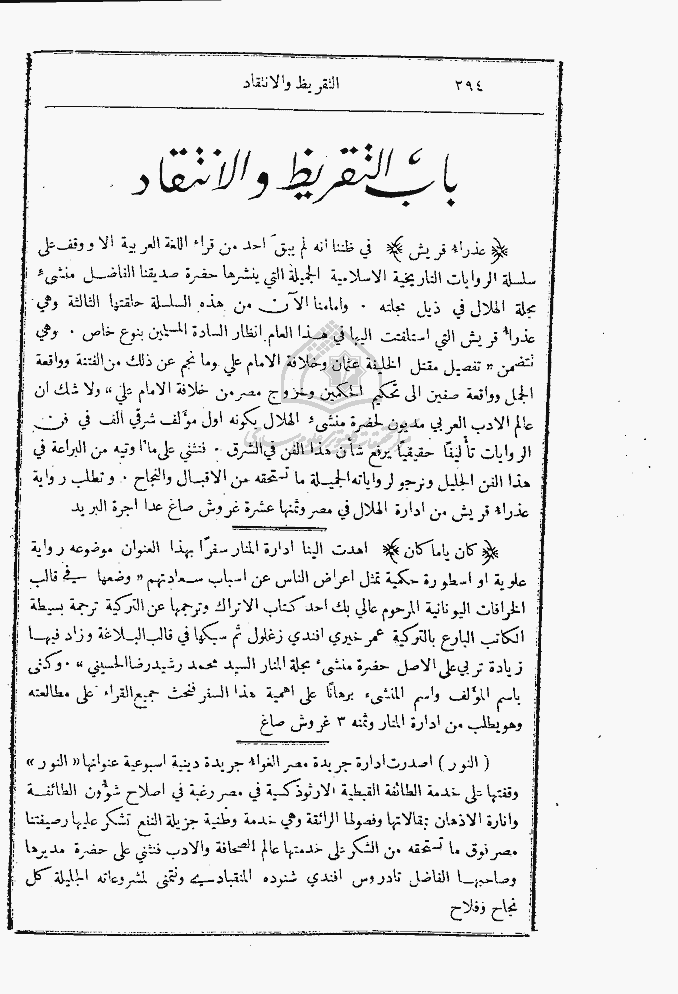 ٣٩٤
التقريظ والانتقاد
باب التقريظ والانتقاد
﴿ عذراء قريش ﴾ في ظننا انه لم يبقَ احد من قراء اللغة العربية الا ووقف على
سلسلة الروايات التاريخية الاسلامية الجميلة التي ينشرها حضرة صديقنا الفاضل منشىء
مجلة الهلال في ذيل مجلته . وامامنا الآن من هذه السلسلة حلقتها الثالثة وهي
عذراء قريش التي استلفتت اليها في هذا العام انظار السادة المسلمين بنوع خاص . وهي
تتضمن « تفصيل مقتل الخليفة عثمان وخلافة الامام علي وما نجم عن ذلك من الفتنة وواقعة
الجمل وواقعة صفين الى تحكيم الحكمين وخروج مصر من خلافة الامام علي » ولا شك ان
عالم الادب العربي مديون لحضرة منشىء الهلال بكونه اول مؤلف شرقي الف في فن
الروايات تأليفًا حقيقيًا يرفع شأن هذا الفن في الشرق . فنثني على ما اوتيه من البراعة في
هذا الفن الجليل ونرجو لرواياته الجميلة ما تستحقه من الاقبال والنجاح . وتطلب رواية
عذراء قريش من ادارة الهلال في مصر وثمنها عشرة غروش صاغ عدا اجرة البريد
﴿ كان ياما كان ﴾ اهدت الينا ادارة المنار سفرًا بهذا العنوان موضوعه رواية
علوية او اسطورة حكمية تمثل اعراض الناس عن اسباب سعادتهم « وضعها في قالب
الخرافات اليونانية المرحوم عالي بك احد كتاب الاتراك وترجمها عن التركية ترجمة بسيطة
الكاتب البارع بالتركية عمر خيري افندي زغلول ثم سبكها في قالب البلاغة وزاد فيها
زيادة تربي على الاصل حضرة منشىء مجلة المنار السيد محمد رشيد رضا الحسيني » . وكفى
باسم المؤلف واسم المنشىء برهانًا على اهمية هذا السفر فنحث جميع القراء على مطالعته
وهو يطلب من ادارة المنار وثمنه ٣ غروش صاغ
( النور ) اصدرت ادارة جريدة مصر الغراء جريدة دينية اسبوعية عنوانها « النور »
وقفتها على خدمة الطائفة القبطية الارثوذكسية في مصر رغبة في اصلاح شؤون الطائفة
وانارة الاذهان بمقالاتها وفصولها الرائقة وهي خدمة وطنية جزيلة النفع تشكر عليها رصيفتنا
مصر فوق ما تستحقه من الشكر على خدمتها عالم الصحافة والادب فنثني على حضرة مديرها
وصاحبها الفاضل تادروس افندي شنوده المنقبادي ونتمنى لمشروعاته الجليلة كل
نجاح وفلاح